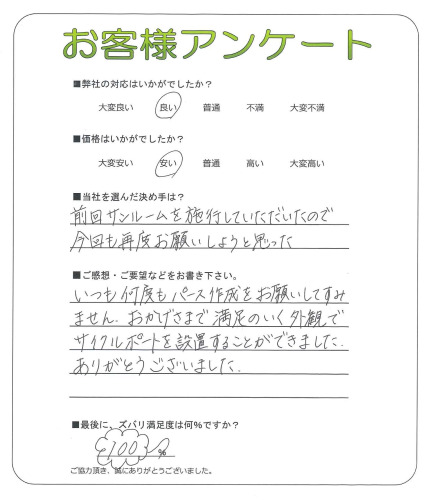 お客様アンケート
■弊社の対応はいかがでしたか？
大変良い 良い 普通 不満 大変不満
■価格はいかがでしたか？
大変安い 安い 普通 高い 大変高い
■当社を選んだ決め手は？
前回サンルームを施行していただいたので
今回も再度お願いしようと思った
■ご感想・ご要望などをお書き下さい。
いつも何度もパース作成をお願いしてすみ
ません。おかげさまで満足のいく外観で
サイクルポートを設置することができました。
ありがとうございました。
■最後に、ズバリ満足度は何%ですか？
100 %
ご協力頂き、誠にありがとうございました。